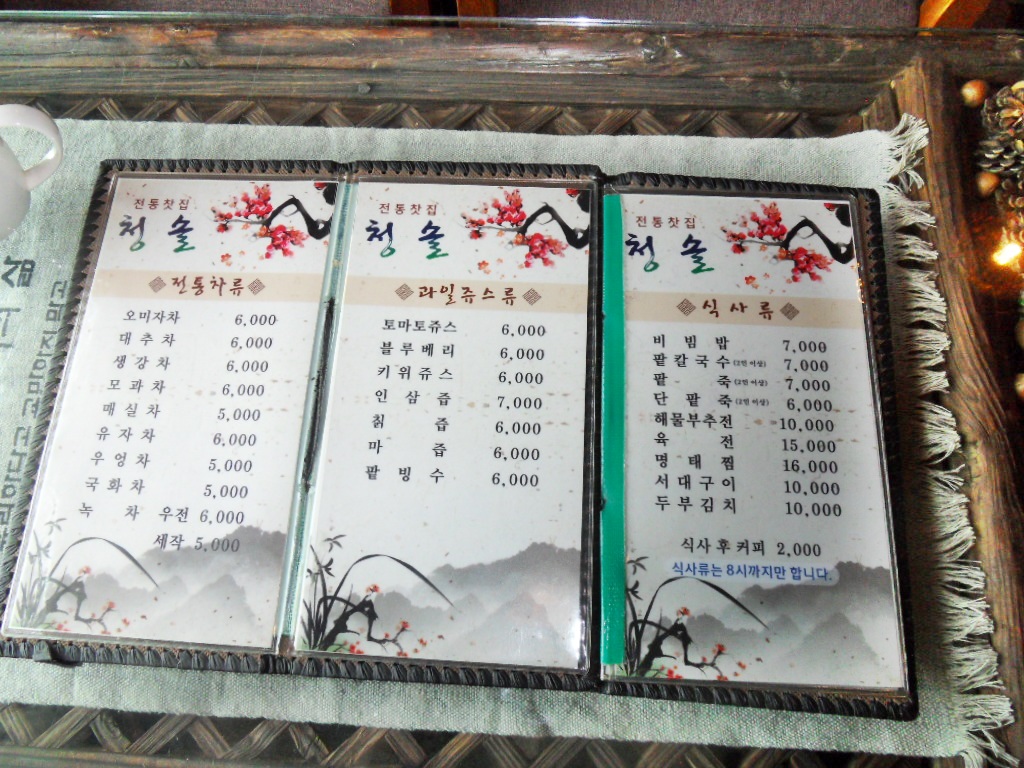 전통찻집
청솔
전통차류
오미자차 6,000
대추차 6,000
생강차 6,000
모과차 6,000
매실차 5,000
유자차 6,000
우엉차 5,000
국화차 5,000
녹차 우전 6,000
세작 5,000
전통찻집
청솔
과일쥬스류
토마토쥬스 6,000
블루베리 6,000
키위쥬스 6,000
인삼즙 7,000
칡즙 6,000
마즙 6,000
팥빙수 6,000
전통찻집
청솔
식사류
비빔밥 7,000
팥칼국수(2인 이상) 7,000
팥죽(2인 이상) 7,000
단팥죽(2인 이상) 6,000
해물부추전 10,000
육전 15,000
명태찜 16,000
서대구이 10,000
두부김치 10,000
식사 후 커피 2,000
식사류는 8시까지만 합니다.